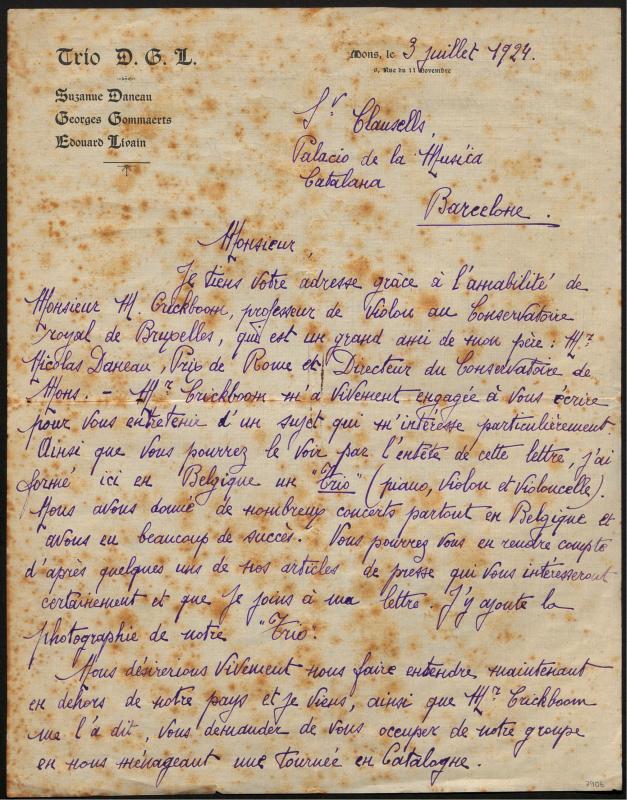 Trio D. G. L.
Suzanne Daneau
Georges Gommaerts
Edouard Livain
Mons, le 3 juillet 1924.
6, Rue du 11 Novembre
Sr Clausells,
Palacio de la Musica
Catalana
Barcelone.
Monsieur,
Je tiens votre adresse grâce à l'amabilité de
Monsieur M. Crickboom, professeur de Violon au Conservatoire
royal de Bruxelles, qui est un grand ami de mon père : Mr
Nicolas Daneau, Prix de Rome et Directeur du Conservatoire de
Mons. - Mr Crickboom m'a vivement engagée à vous écrire
pour vous entretenir d'un sujet qui m'intéresse particulièrement.
Ainsi que vous pourrez le voir par l'entête de cette lettre, j'ai
formé ici en Belgique un "Trio" (piano, violon et violoncelle).
Nous avons donné de nombreux concerts partout en Belgique et
avons eu beaucoup de succès. Vous pourrez vous en rendre compte
d'après quelques uns de nos articles de presse qui vous intéresseront
certainement et que je joins à ma lettre. J'y ajoute la
photographie de notre "Trio".
Nous désirerions vivement nous faire entendre maintenant
en dehors de notre pays et je viens, ainsi que Mr Crickboom
me l'a dit, vous demander de vous occuper de notre groupe
en nous ménageant une tournée en Catalogne.
7906